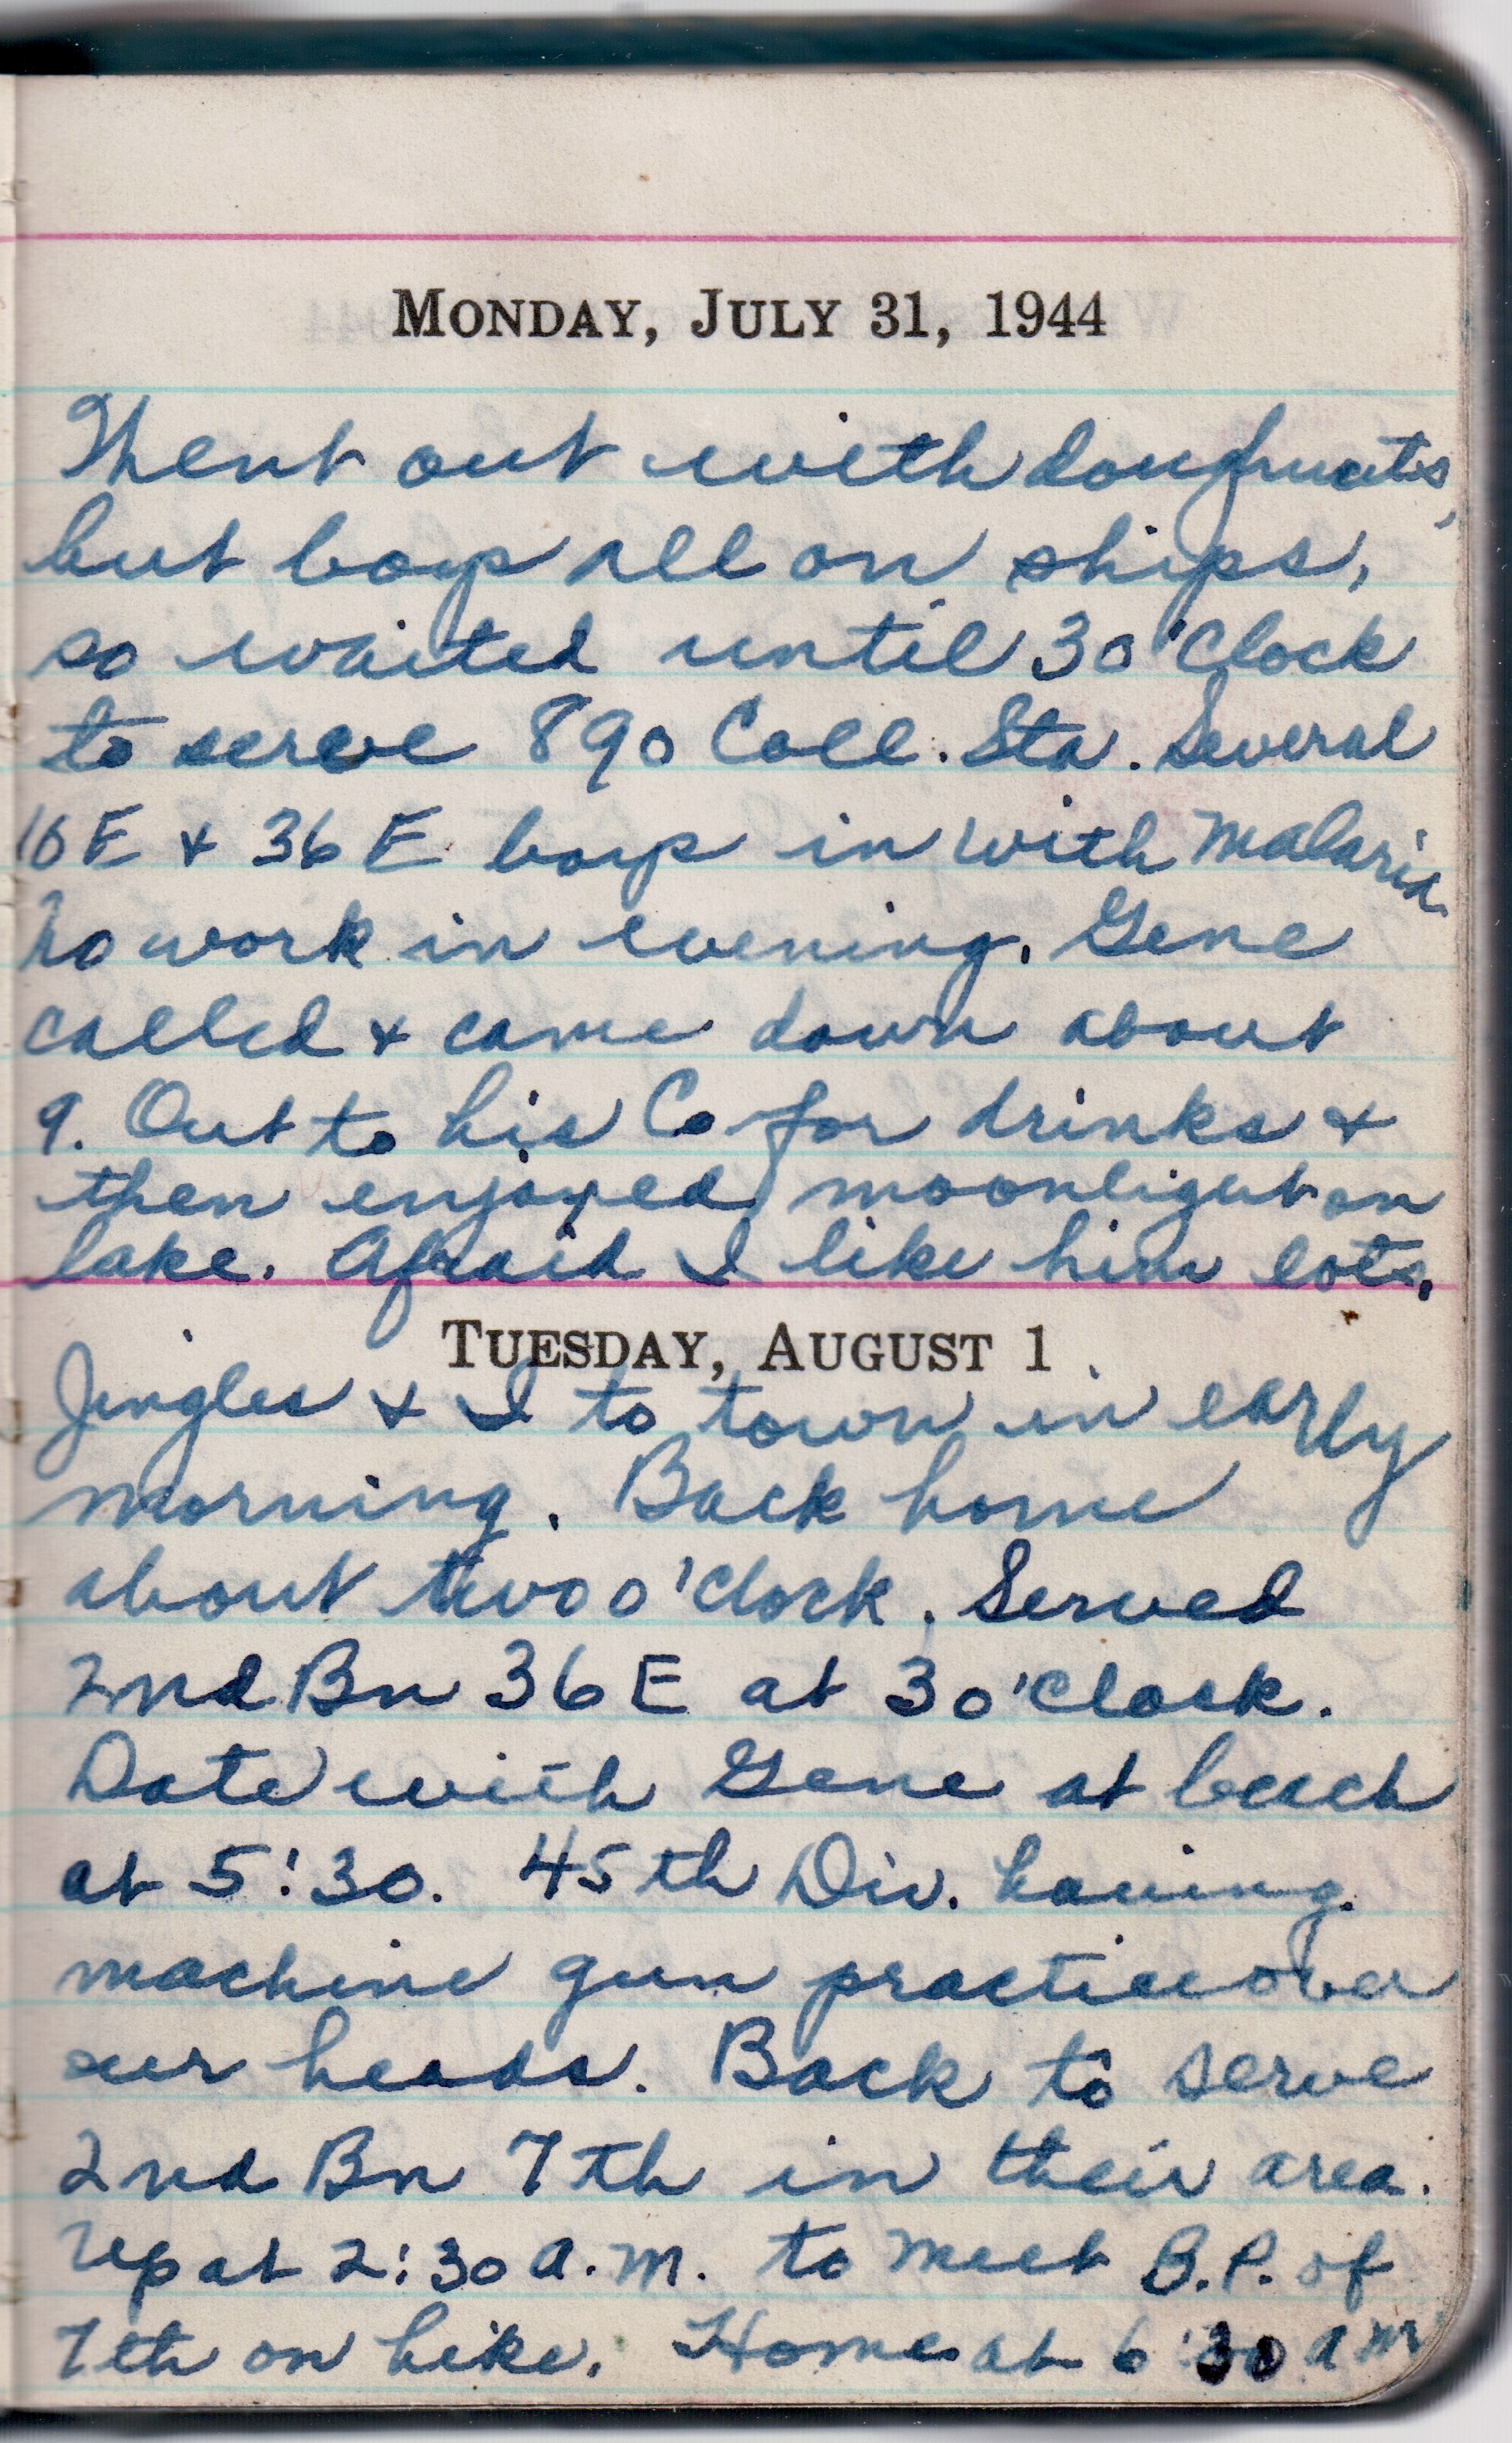 MONDAY, JULY 31, 1944
Went out with doughnuts,
but boys all on ships,
so waited until 3 o'clock
to serve 890 Coll. Sta. Several
10 E & 36 E boys in with malaria.
No work in evening. Gene
called & came down about
9. Out to his Co for drinks &
then enjoyed moonlight on
lake. Afraid I like him lots.
TUESDAY, AUGUST 1
Jingles & I to town in early
morning. Back home
about two o'clock. Served
2nd Bn 36 E at 3 o'clock.
Date with Gene at beach
at 5:30. 45th Div. having
machine gun practice over
our heads. Back to serve
2nd Bn 7th in their area.
Up at 2:30 a.m. to meet B.P. of
7th on hike. Home at 6:30 am